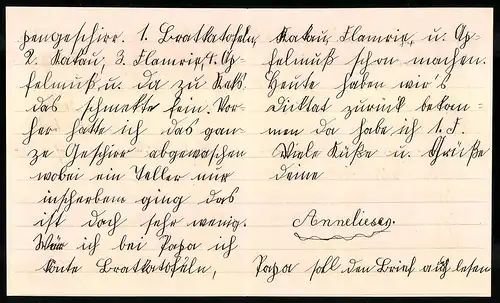 pengeschirr. 1. Bratkatofeln,
2. Kakau, 3. Flamrie, 4. Ap-
felmuß, u. da zu Keks
das schmekte fein. Vor-
her hatte ich das gan-
ze Geschirr abgewaschen
wobei ein Teller nur
inscherben ging das
ist doch sehr wenig.
Wär ich bei Papa ich
könte Bratkatofeln,
Kakau, Flamrie, u. Ap-
felmuß schon machen.
Heute haben wir's
Diktat zurück bekom-
men da habe ich 1. F.
Viele Küße u. Grüße
deine
Annelies.
Papa soll den Brief auch lesen